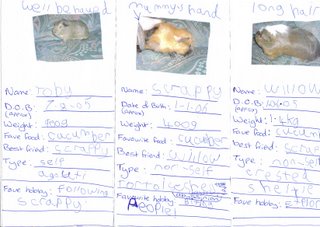 well behaved
Name: Toby
D.O.B: 7.2.05
(Approx)
Weight: 900g
Fave food: cucumber
Best friend: scrappy
Type: self
agouti
Fave hobby: following
scrappy.
mummy's hand
Name: Scrappy
Date of Birth: 1-1-06
(Approx)
Weight: 400g
Favourite food: cucumber
Best friend: willow
Type: non-self
Tortoiseshell
Favourite hobby:
People!
long hair
Name: willow
D.O.B:
(Approx)
Weight: 1.1kg
Fave food: cucum
Best friend: scrapp
Type: non-self
crested
sheltie
Fave hobby: Explor